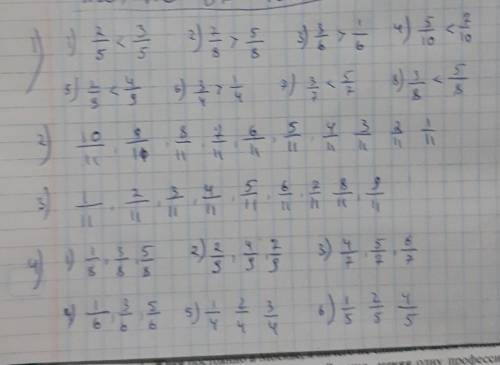 1) 1) 2/5 < 3/5 2) 7/8 > 5/8 3) 3/6 > 1/6 4) 5/10 < 7/10
5) 2/9 < 4/9 6) 3/4 > 1/4 7) 3/7 < 5/7 8) 3/8 < 5/8
2) 10/11, 9/11, 8/11, 7/11, 6/11, 5/11, 4/11 3/11 2/11 1/11
3) 1/11, 2/11, 3/11, 4/11, 5/11, 6/11, 7/11 8/11 9/11
4) 1) 1/8, 3/8, 5/8 2) 2/9, 4/9, 7/9 3) 4/7, 5/7, 6/7
4) 1/6, 3/6, 5/6 5) 1/4 2/4 3/4 6) 1/5 2/5 4/5
одну